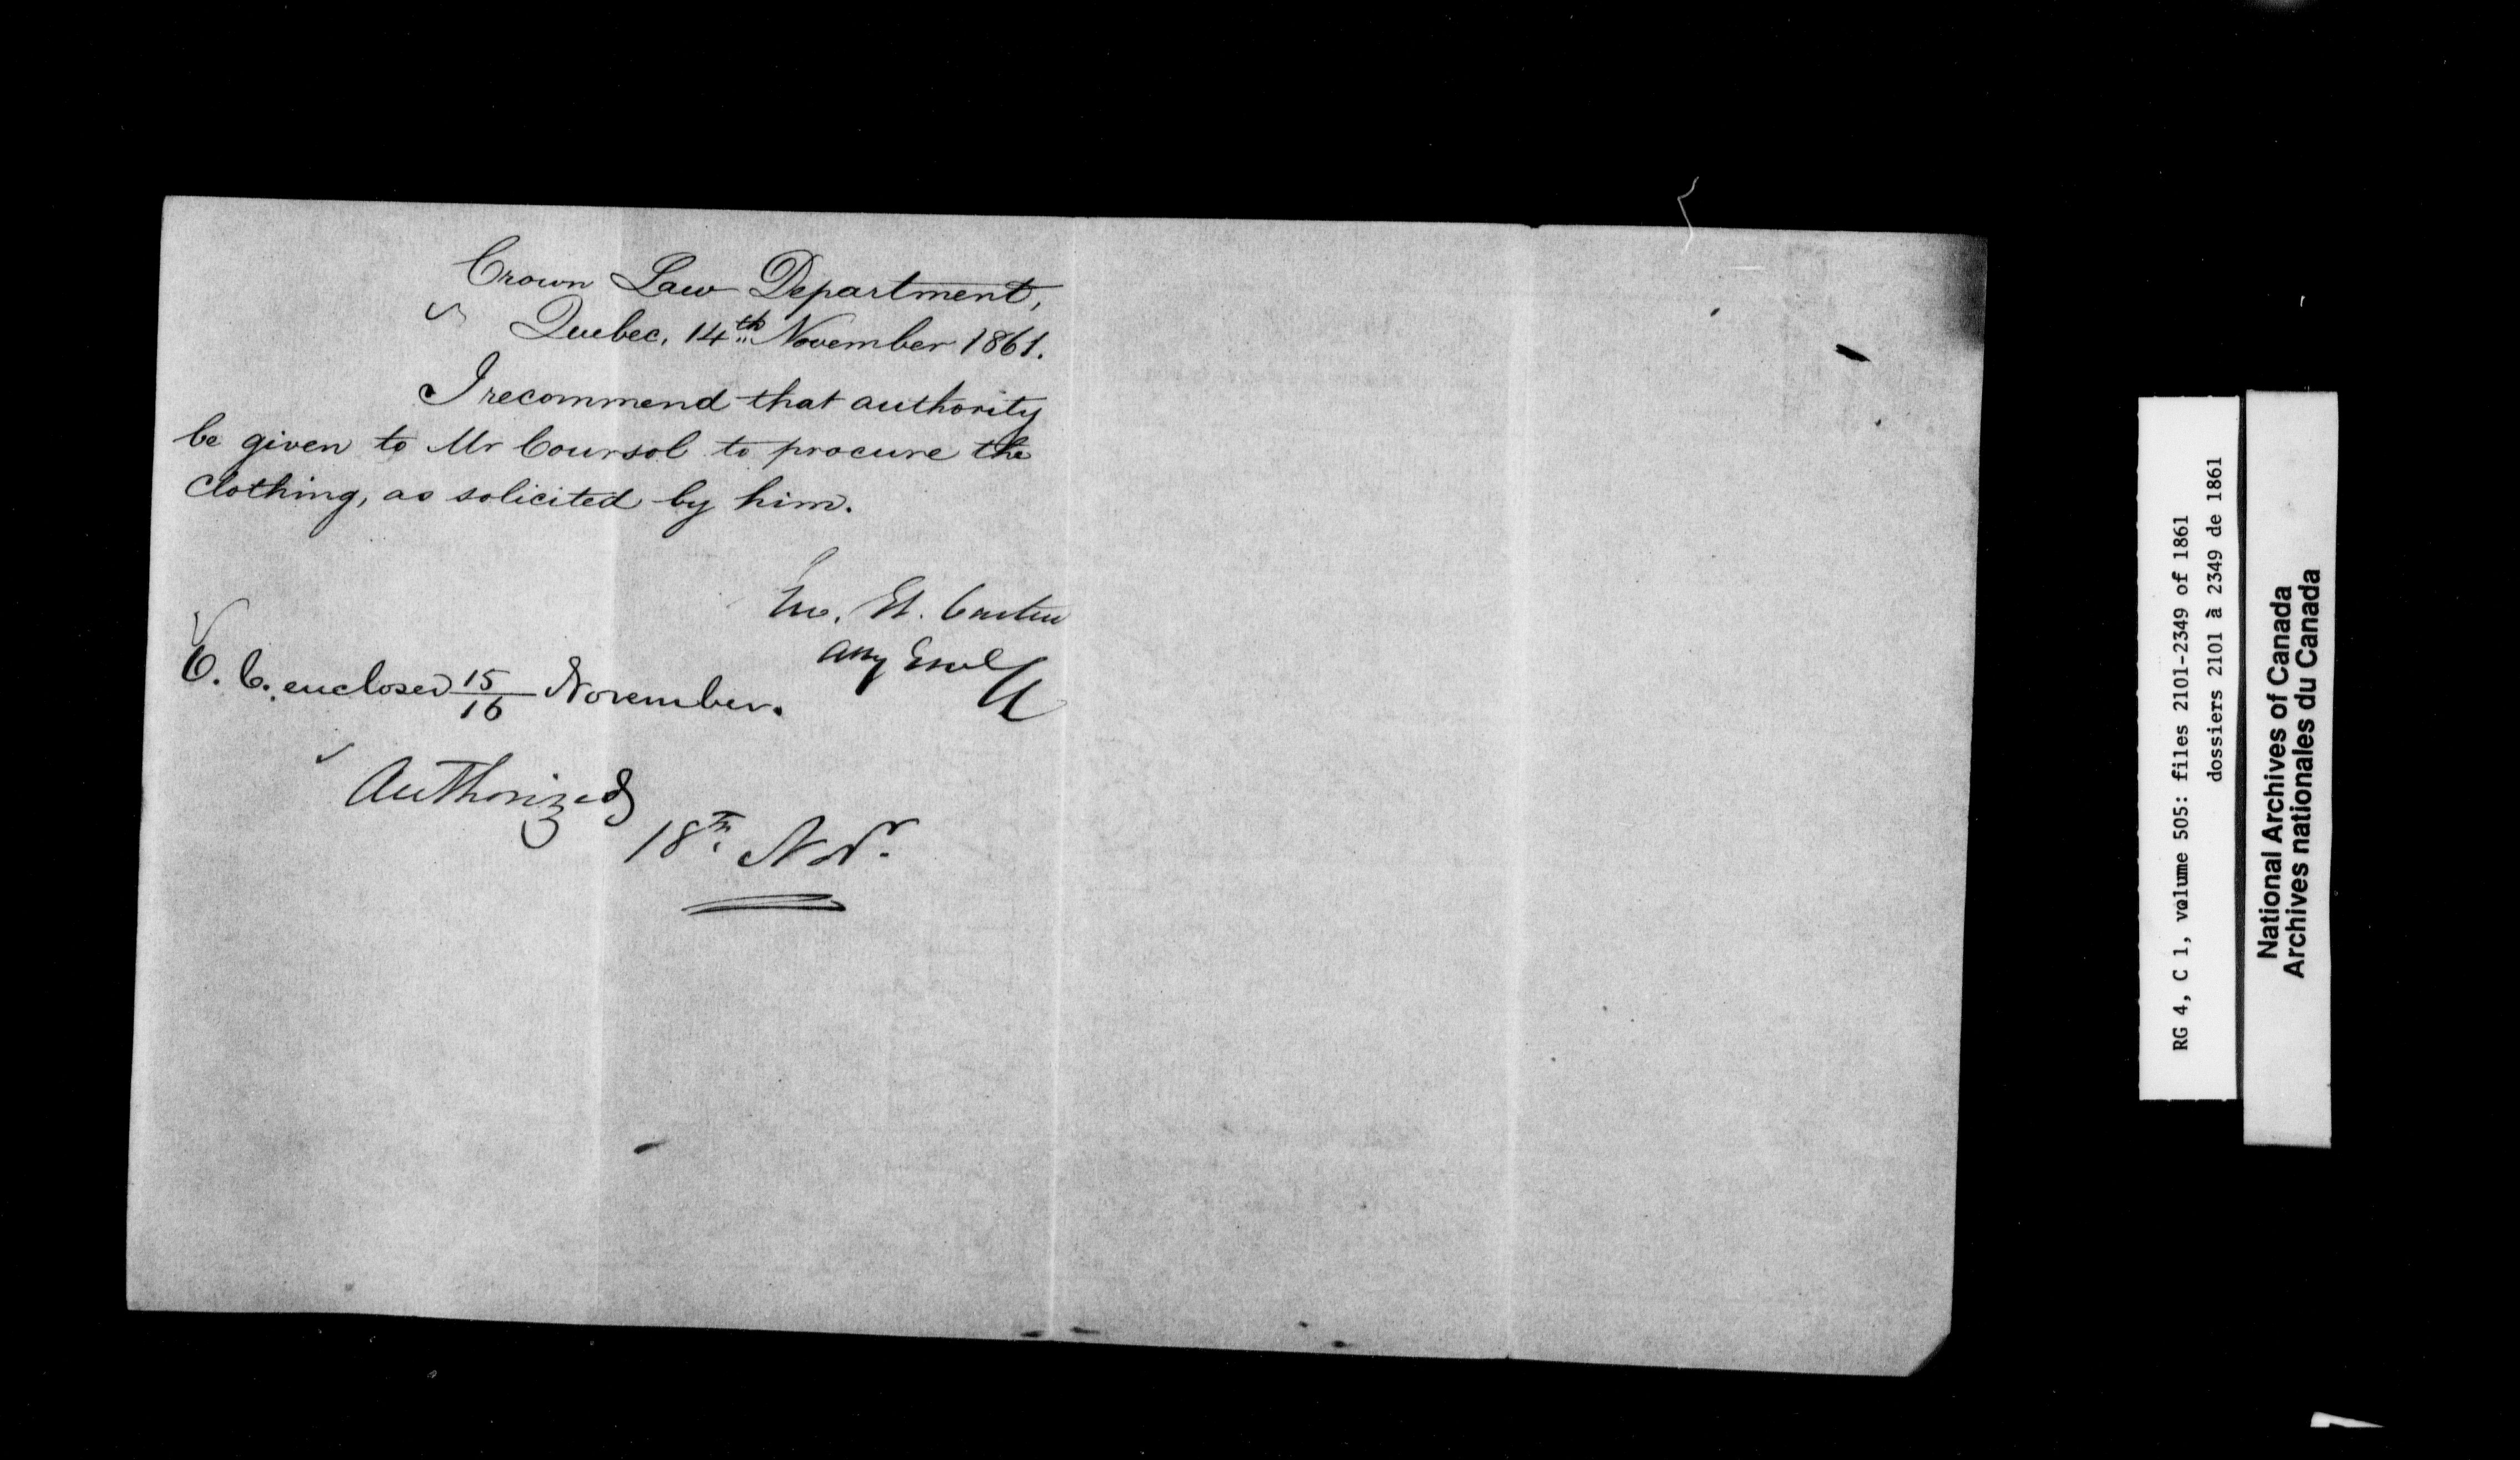 Crown Law Department,
Quebec, 14th November 1861.
I recommend that authority
be given to Mr Coursol to procure the
clothing, as solicited by him.
Geo. Et. Cartier
Atty Genl
O.C. enclosed 15/16 November.
Authorized
18th Novr.
RG 4, C 1, volume 505: files 2101-2349 of 1861
dossiers 2101 à 2349 de 1861
National Archives of Canada
Archives nationales du Canada